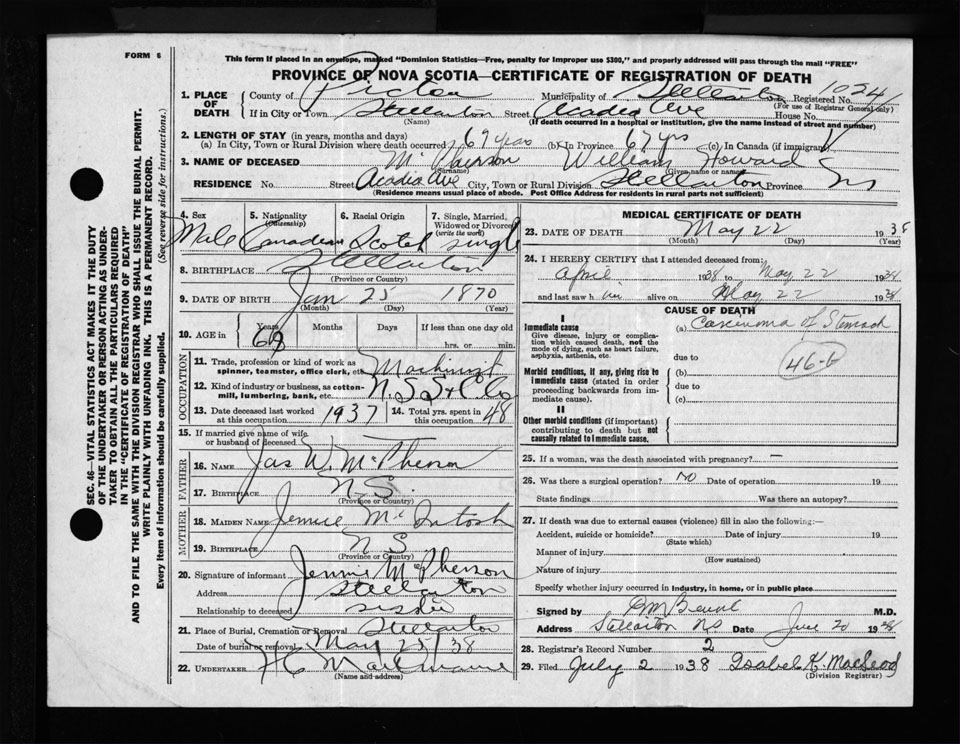 FORM 6
This form if placed in an envelope, marked "Dominion Statistics—Free, penalty for improper use $300," and properly addressed will pass through the mail "FREE"
PROVINCE OF NOVA SCOTIA—CERTIFICATE OF REGISTRATION OF DEATH
SEC. 46—VITAL STATISTICS ACT MAKES IT THE DUTY
OF THE UNDERTAKER OR PERSON ACTING AS UNDER-
TAKER TO OBTAIN ALL THE PARTICULARS REQUIRED
IN THE "CERTIFICATE OF REGISTRATION OF DEATH"
AND TO FILE THE SAME WITH THE DIVISION REGISTRAR WHO SHALL ISSUE THE BURIAL PERMIT.
WRITE PLAINLY WITH UNFADING INK. THIS IS A PERMANENT RECORD.
Every item of information should be carefully supplied. (See reverse side for instructions.)
1. PLACE OF DEATH County of Pictou Municipality of Stellarton Registered No. 1024
(For use of Registrar General only)
If in City or Town Stellarton Street Acadia Ave House No.
(Name) (If death occurred in a hospital or institution, give the name instead of street and number)
2. LENGTH OF STAY (in years, months and days)
(a) In City, Town or Rural Division where death occurred 69 years (b) In Province 69 yrs (c) In Canada (if immigrant)
3. NAME OF DECEASED McPherson William Howard
(Surname) (Given name or names)
RESIDENCE No. Street Acadia Ave City, Town or Rural Division Stellarton Province NS
(Residence means usual place of abode. Post Office Address for residents in rural parts not sufficient)
4. Sex 5. Nationality (Citizenship) 6. Racial Origin 7. Single, Married, Widowed or Divorced (write the word)
Male Canadian Scotch Single
8. BIRTHPLACE Stellarton
(Province or Country)
9. DATE OF BIRTH Jan 25 1870
(Month) (Day) (Year)
10. AGE in Years Months Days If less than one day old
hrs. or min.
OCCUPATION
11. Trade, profession or kind of work as spinner, teamster, office clerk, etc. Machinist
12. Kind of industry or business, as cotton-mill, lumbering, bank, etc. N.S.S & C Co
13. Date deceased last worked at this occupation 1937 14. Total yrs. spent in this occupation 48
15. If married give name of wife or husband of deceased
FATHER
16. NAME Jas W. McPherson
17. BIRTHPLACE N.S.
(Province or Country)
MOTHER
18. MAIDEN NAME Jennie McIntosh
19. BIRTHPLACE N S
(Province or Country)
20. Signature of informant Jennie McPherson
Address Stellarton
Relationship to deceased sister
21. Place of Burial, Cremation or Removal Stellarton
Date of burial or removal May 25/38
22. UNDERTAKER
(Name and address)
MEDICAL CERTIFICATE OF DEATH
23. DATE OF DEATH May 22 1938
(Month) (Day) (Year)
24. I HEREBY CERTIFY that I attended deceased from:
April 1938 to May 22 1938
and last saw him alive on May 22 1938
CAUSE OF DEATH
I
Immediate cause
Give disease, injury or complication which caused death, not the mode of dying, such as heart failure, asphyxia, asthenia, etc.
(a) Carcinoma of Stomach
46-b
due to
Morbid conditions, if any, giving rise to immediate cause (stated in order proceeding backwards from immediate cause).
(b)
due to
(c)
II
Other morbid conditions (if important) contributing to death but not causally related to immediate cause.
25. If a woman, was the death associated with pregnancy? —
26. Was there a surgical operation? NO Date of operation 19
State findings Was there an autopsy?
27. If death was due to external causes (violence) fill in also the following:—
Accident, suicide or homicide? Date of injury 19
(State which)
Manner of injury
(How sustained)
Nature of injury
Specify whether injury occurred in industry, in home, or in public place
Signed by M.D.
Address Stellarton NS Date June 20 1938
28. Registrar's Record Number 2
29. Filed July 2 1938 Isabel K. MacLeod
(Division Registrar)